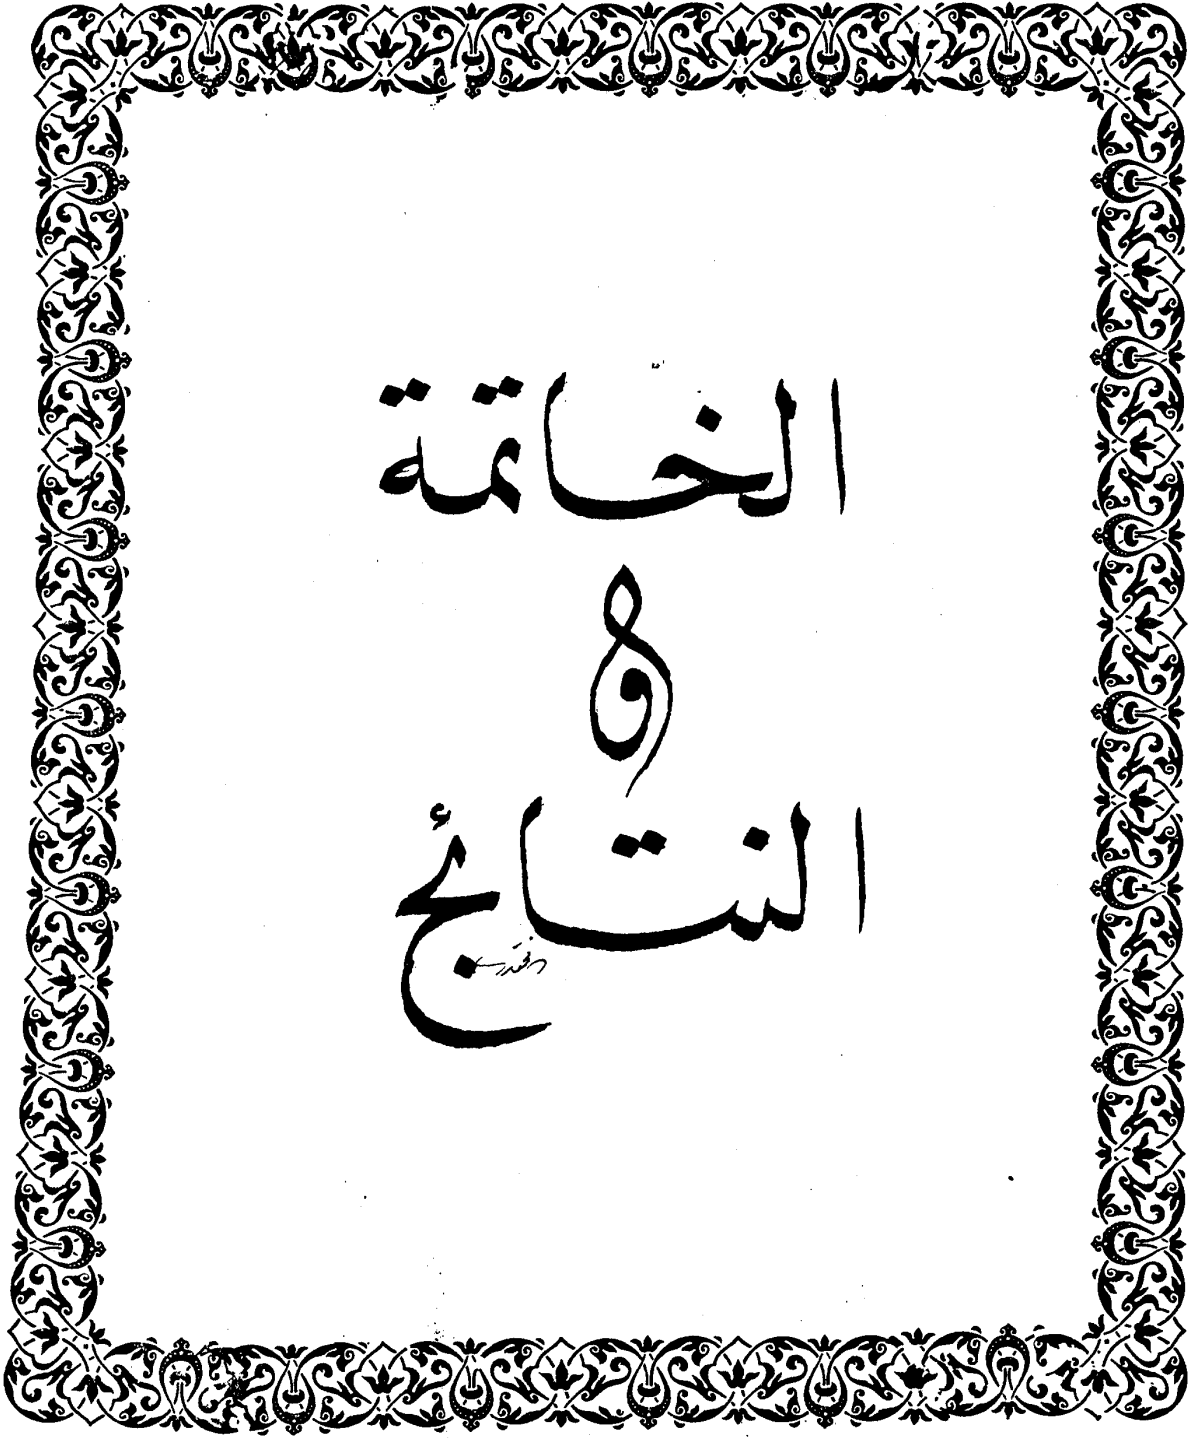 الخاتمة
و
النتائج